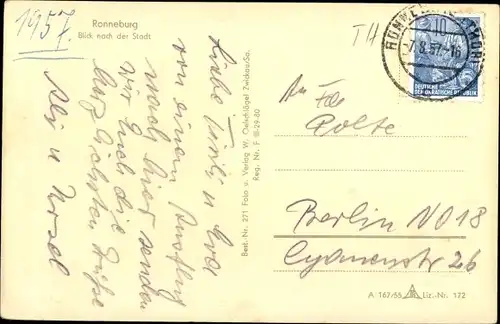 1957.
Ronneburg
Blick nach der Stadt
Liebe u
von einem Ausflug
nach hier senden
wir Euch die
herzlichsten Grüße
u Ursel
Best.-Nr. 271 Foto u. Verlag W. Oelschlägel Zwickau/Sa.
Reg. Nr. F III-29-80
TH
10
-7.8.57.-16
DEUTSCHE
DEMOKRATISCHE REPUBLIK
An
Polte
Berlin NO 18
A 167/55 Liz.-Nr. 172